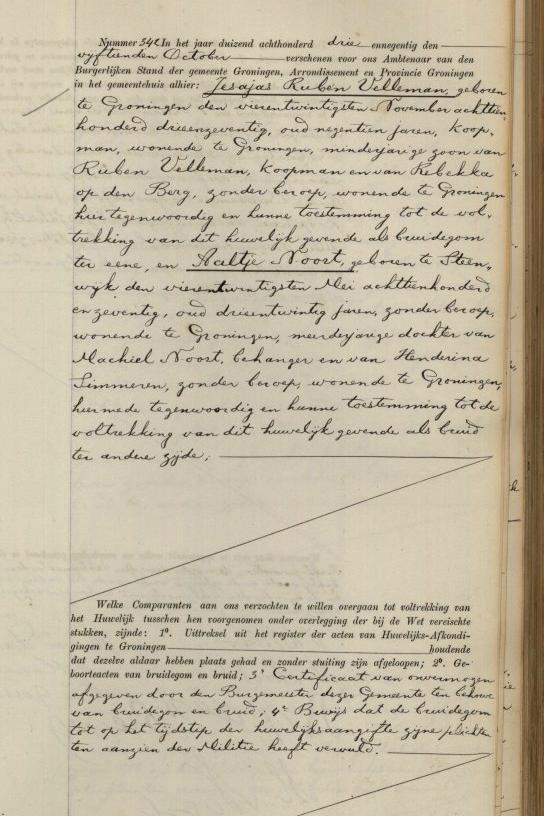 Nummer 342 In het jaar duizend achthonderd drie ennegentig den
vyftienden October verschenen voor ons Ambtenaar van den
Burgerlijken Stand der gemeente Groningen, Arrondissement en Provincie Groningen
in het gemeentehuis alhier: Jesajas Ruben Velleman, geboren
te Groningen den vierentwintigsten November achttien
honderd drieenzeventig, oud negentien jaren, koop-
man, wonende te Groningen, minderjarige zoon van
Ruben Velleman, koopman en van Rebekka
op den Berg, zonder beroep, wonende te Groningen
hiertegenwoordig en hunne toestemming tot de vol-
trekking van dit huwelijk gevende als bruidegom
ter eene, en Aaltje Noort, geboren te Steen-
wijk den vierentwintigsten Mei achttienhonderd
en zeventig, oud drieentwintig jaren, zonder beroep,
wonende te Groningen, meerderjarige dochter van
Machiel Noort, behanger en van Henderina
Simmeren, zonder beroep, wonende te Groningen,
hiermede tegenwoordig en hunne toestemming tot de
voltrekking van dit huwelijk gevende als bruid
ter andere zijde;
Welke Comparanten aan ons verzochten te willen overgaan tot voltrekking van
het Huwelijk tusschen hen voorgenomen onder overlegging der bij de Wet vereischte
stukken, zijnde: 1º. Uittreksel uit het register der acten van Huwelijks-Afkondi-
gingen te Groningen houdende
dat dezelve aldaar hebben plaats gehad en zonder stuiting zijn afgeloopen; 2º. Ge-
boorteacten van bruidegom en bruid; 3º Certificaat van onvermogen
afgegeven door den Burgemeester dezer Gemeente ten behoeve
van bruidegom en bruid; 4º Bewijs dat de bruidegom
tot op het tijdstip der huwelijksaangifte zijne plichten
ten aanzien der Militie heeft vervuld.